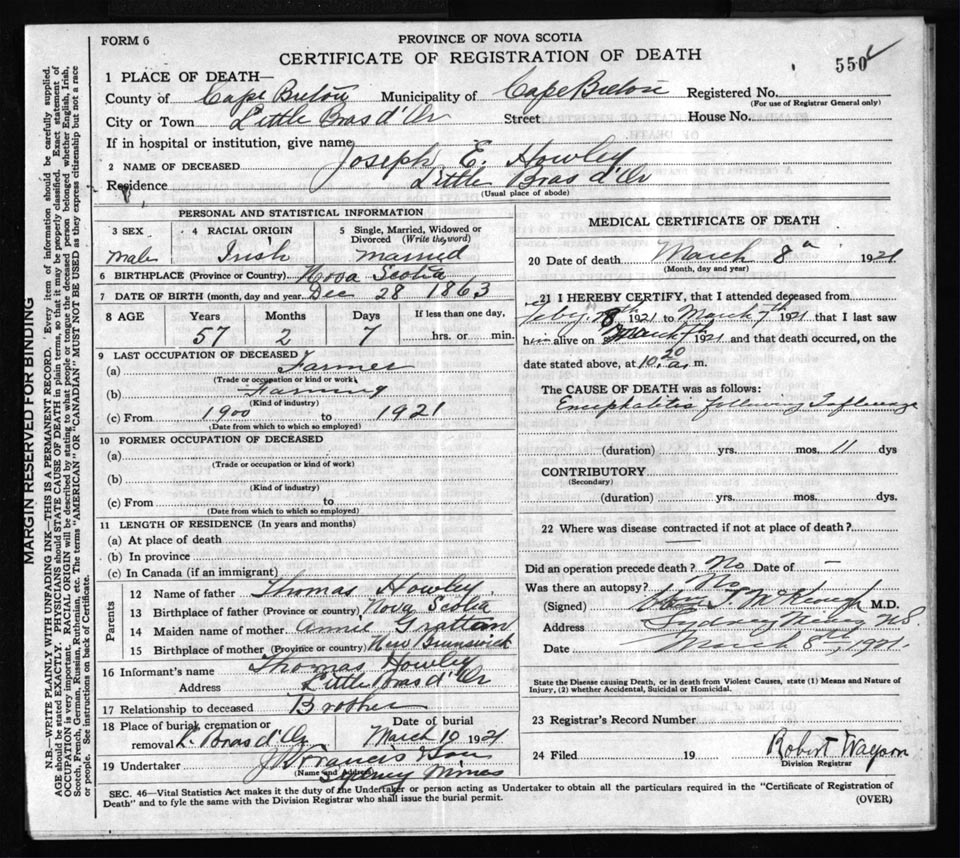 FORM 6
PROVINCE OF NOVA SCOTIA
CERTIFICATE OF REGISTRATION OF DEATH
550
1 PLACE OF DEATH—
County of Cape Breton Municipality of Cape Breton Registered No.
(For use of Registrar General only)
City or Town Little Bras d'Or Street House No.
If in hospital or institution, give name
2 NAME OF DECEASED Joseph E. Howley
Residence Little Bras d'Or
(Usual place of abode)
PERSONAL AND STATISTICAL INFORMATION
3 SEX
male
4 RACIAL ORIGIN
Irish
5 Single, Married, Widowed or Divorced (Write the word)
married
6 BIRTHPLACE (Province or Country) Nova Scotia
7 DATE OF BIRTH (month, day and year) Dec 28 1863
8 AGE Years Months Days If less than one day,
57 2 7 hrs. or min.
9 LAST OCCUPATION OF DECEASED
(a) Farmer
(Trade or occupation or kind or work)
(b) Farming
(Kind of industry)
(c) From 1900 to 1921
(Date from which to which so employed)
10 FORMER OCCUPATION OF DECEASED
(a)
(Trade or occupation or kind of work)
(b)
(Kind of industry)
(c) From to
(Date from which to which so employed)
11 LENGTH OF RESIDENCE (In years and months)
(a) At place of death
(b) In province
(c) In Canada (if an immigrant)
Parents
12 Name of father Thomas Howley
13 Birthplace of father (Province or country) Nova Scotia
14 Maiden name of mother Annie Grattan
15 Birthplace of mother (Province or country) New Brunswick
16 Informant's name Thomas Howley
Address Little Bras d'Or
17 Relationship to deceased Brother
18 Place of burial, cremation or removal L. Bras d'Or
Date of burial
March 10 1921
19 Undertaker J Francis & Son
(Name and Address)
Sydney Mines
MEDICAL CERTIFICATE OF DEATH
20 Date of death March 8 1921
(Month, day and year)
21 I HEREBY CERTIFY, that I attended deceased from
Feby 1921 to March 7th 1921 that I last saw
him alive on March 7th 1921 and that death occurred, on the
date stated above, at 10.20 a. m.
The CAUSE OF DEATH was as follows:
Encephalitis following Influenza
(duration) yrs. mos. 11 dys
CONTRIBUTORY
(Secondary)
(duration) yrs. mos. dys.
22 Where was disease contracted if not at place of death?
Did an operation precede death? No Date of —
Was there an autopsy? No
(Signed) M.D.
Address Sydney Mines N.S.
Date March 8th, 1921.
State the Disease causing Death, or in death from Violent Causes, state (1) Means and Nature of
Injury, (2) whether Accidental, Suicidal or Homicidal.
23 Registrar's Record Number
24 Filed 19 Robert Wayson
Division Registrar
SEC. 46—Vital Statistics Act makes it the duty of the Undertaker or person acting as Undertaker to obtain all the particulars required in the "Certificate of Registration of
Death" and to fyle the same with the Division Registrar who shall issue the burial permit.
(OVER)
MARGIN RESERVED FOR BINDING
N.B.—WRITE PLAINLY WITH UNFADING INK—THIS IS A PERMANENT RECORD. Every item of information should be carefully supplied.
AGE should be stated EXACTLY. PHYSICIANS should STATE CAUSE OF DEATH in plain terms, so that it may be properly classified. Exact statement of
OCCUPATION is very important. RACIAL ORIGIN will be described by stating to what people or tongue the deceased person belonged whether English, Irish,
Scotch, French, German, Russian, Ruthenian, etc. The terms "AMERICAN" OR "CANADIAN" MUST NOT BE USED as they express citizenship but not a race
or people. See instructions on back of Certificate.